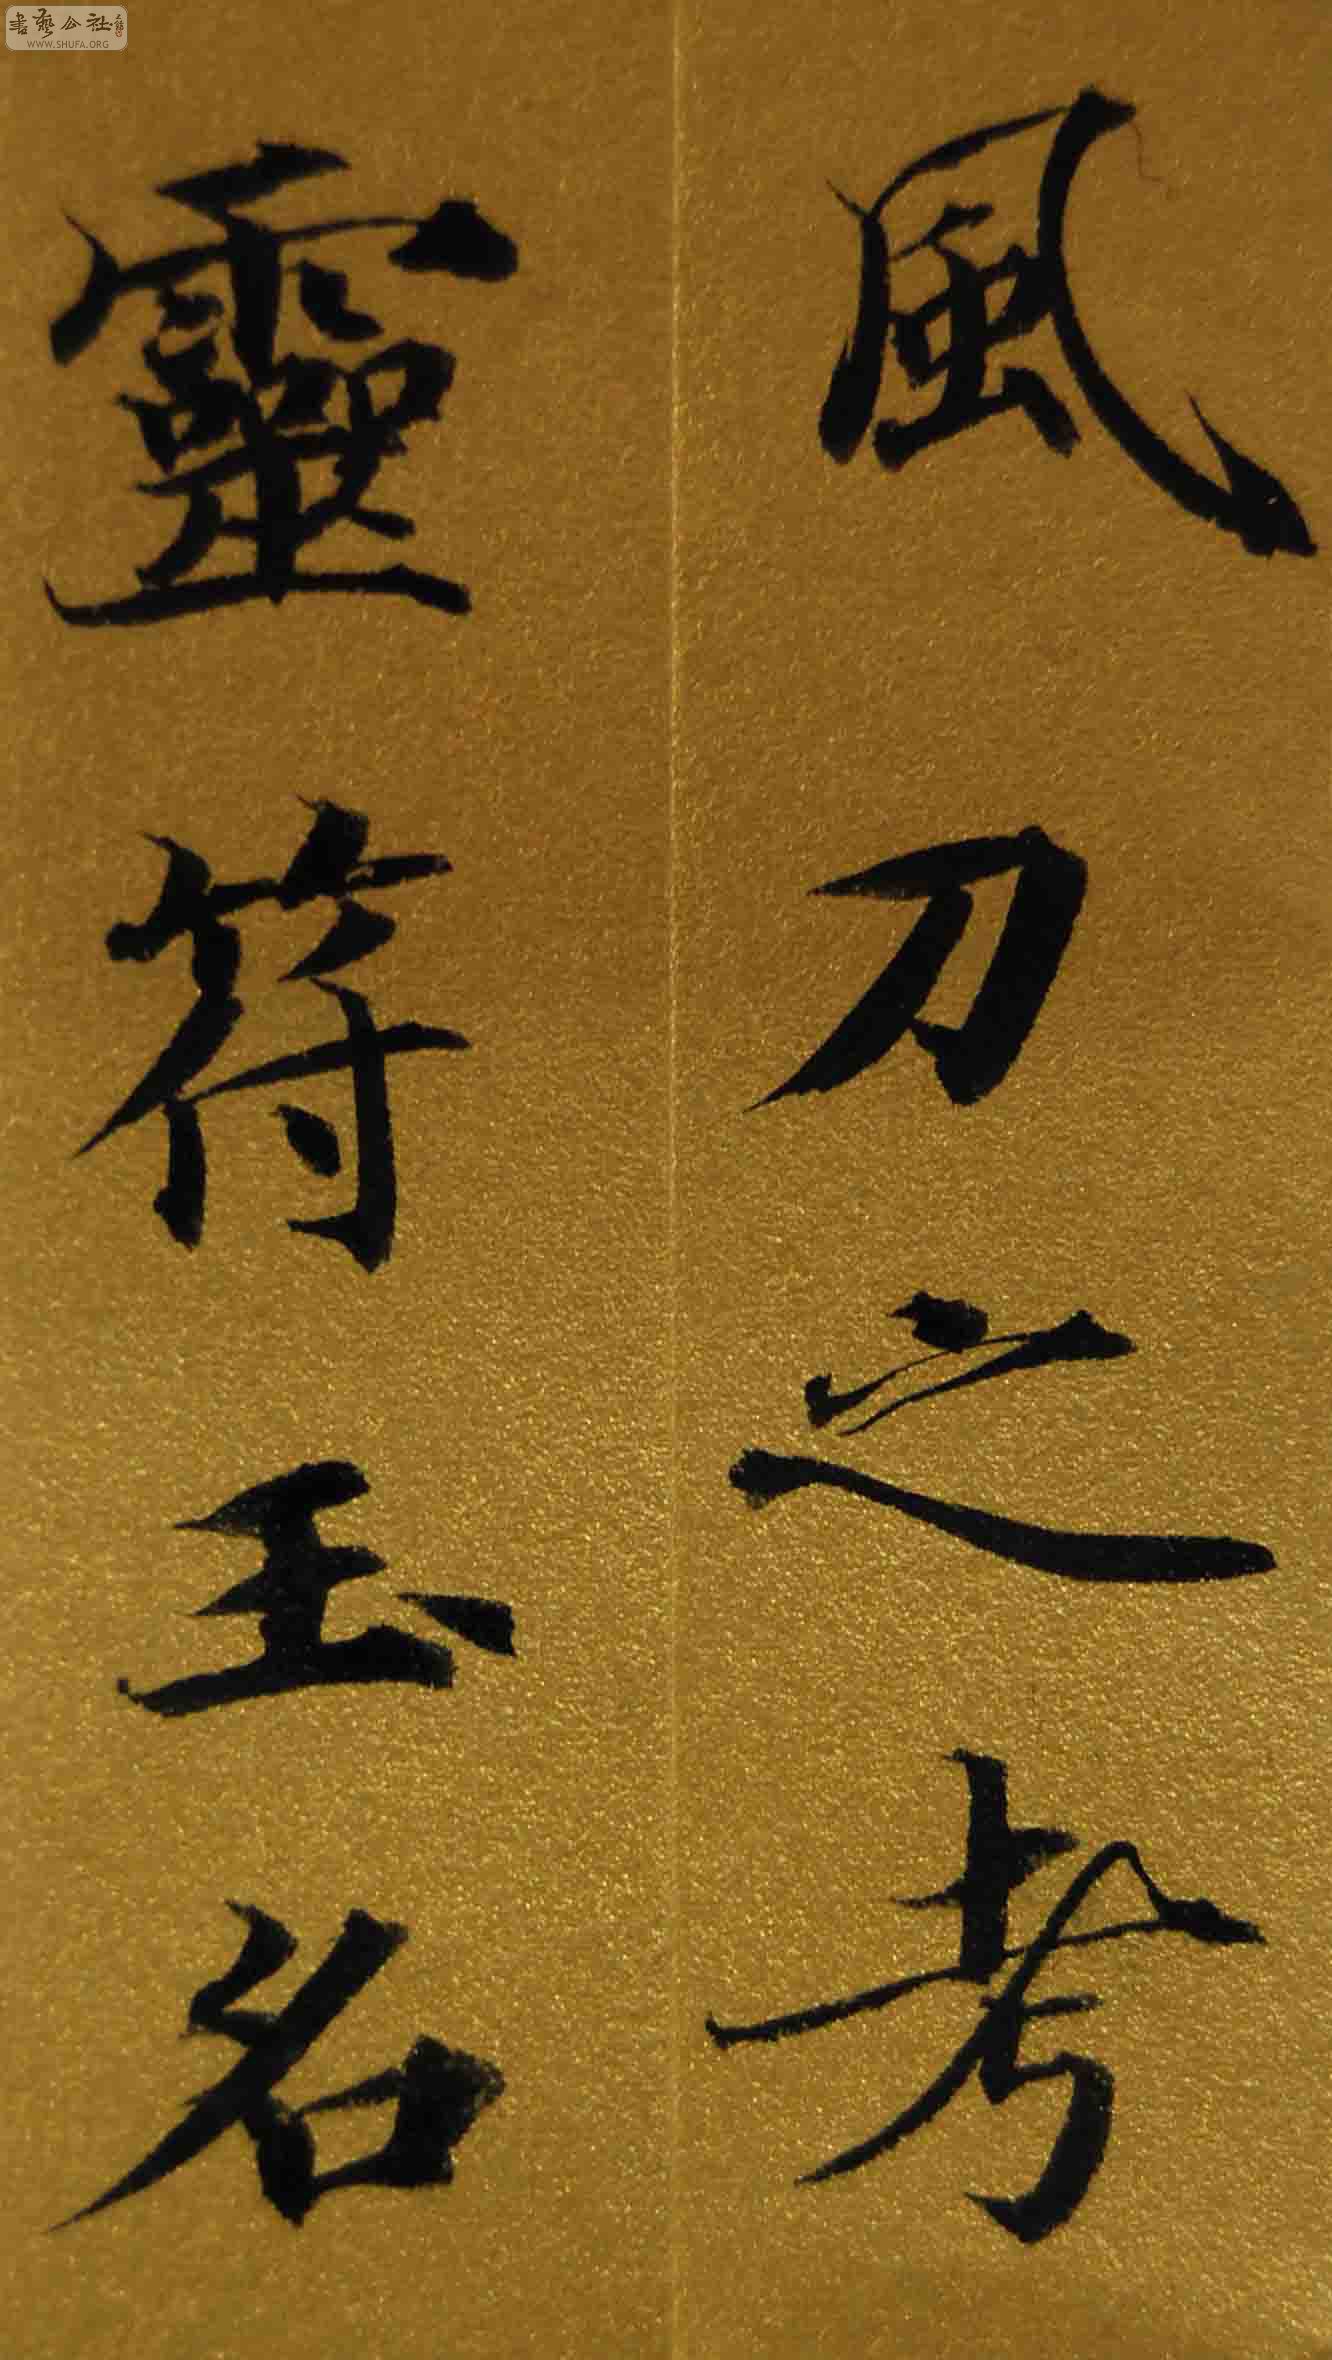 風刀之考
靈符玉名
書藝公社
WWW.SHUFA.ORG